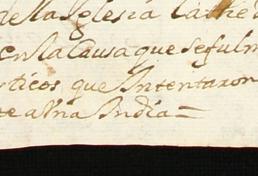 de lla Iglesia Cathed
en la Causa que se fulm
rticos, que Intentaron
te a Una India =